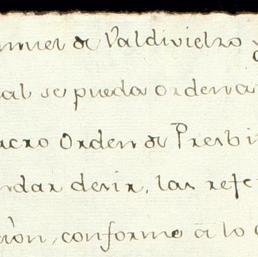 de Valdivielso
se pueda ordena
acro Orden de Presbi
ndar desir, las refe
ción, conforme a lo